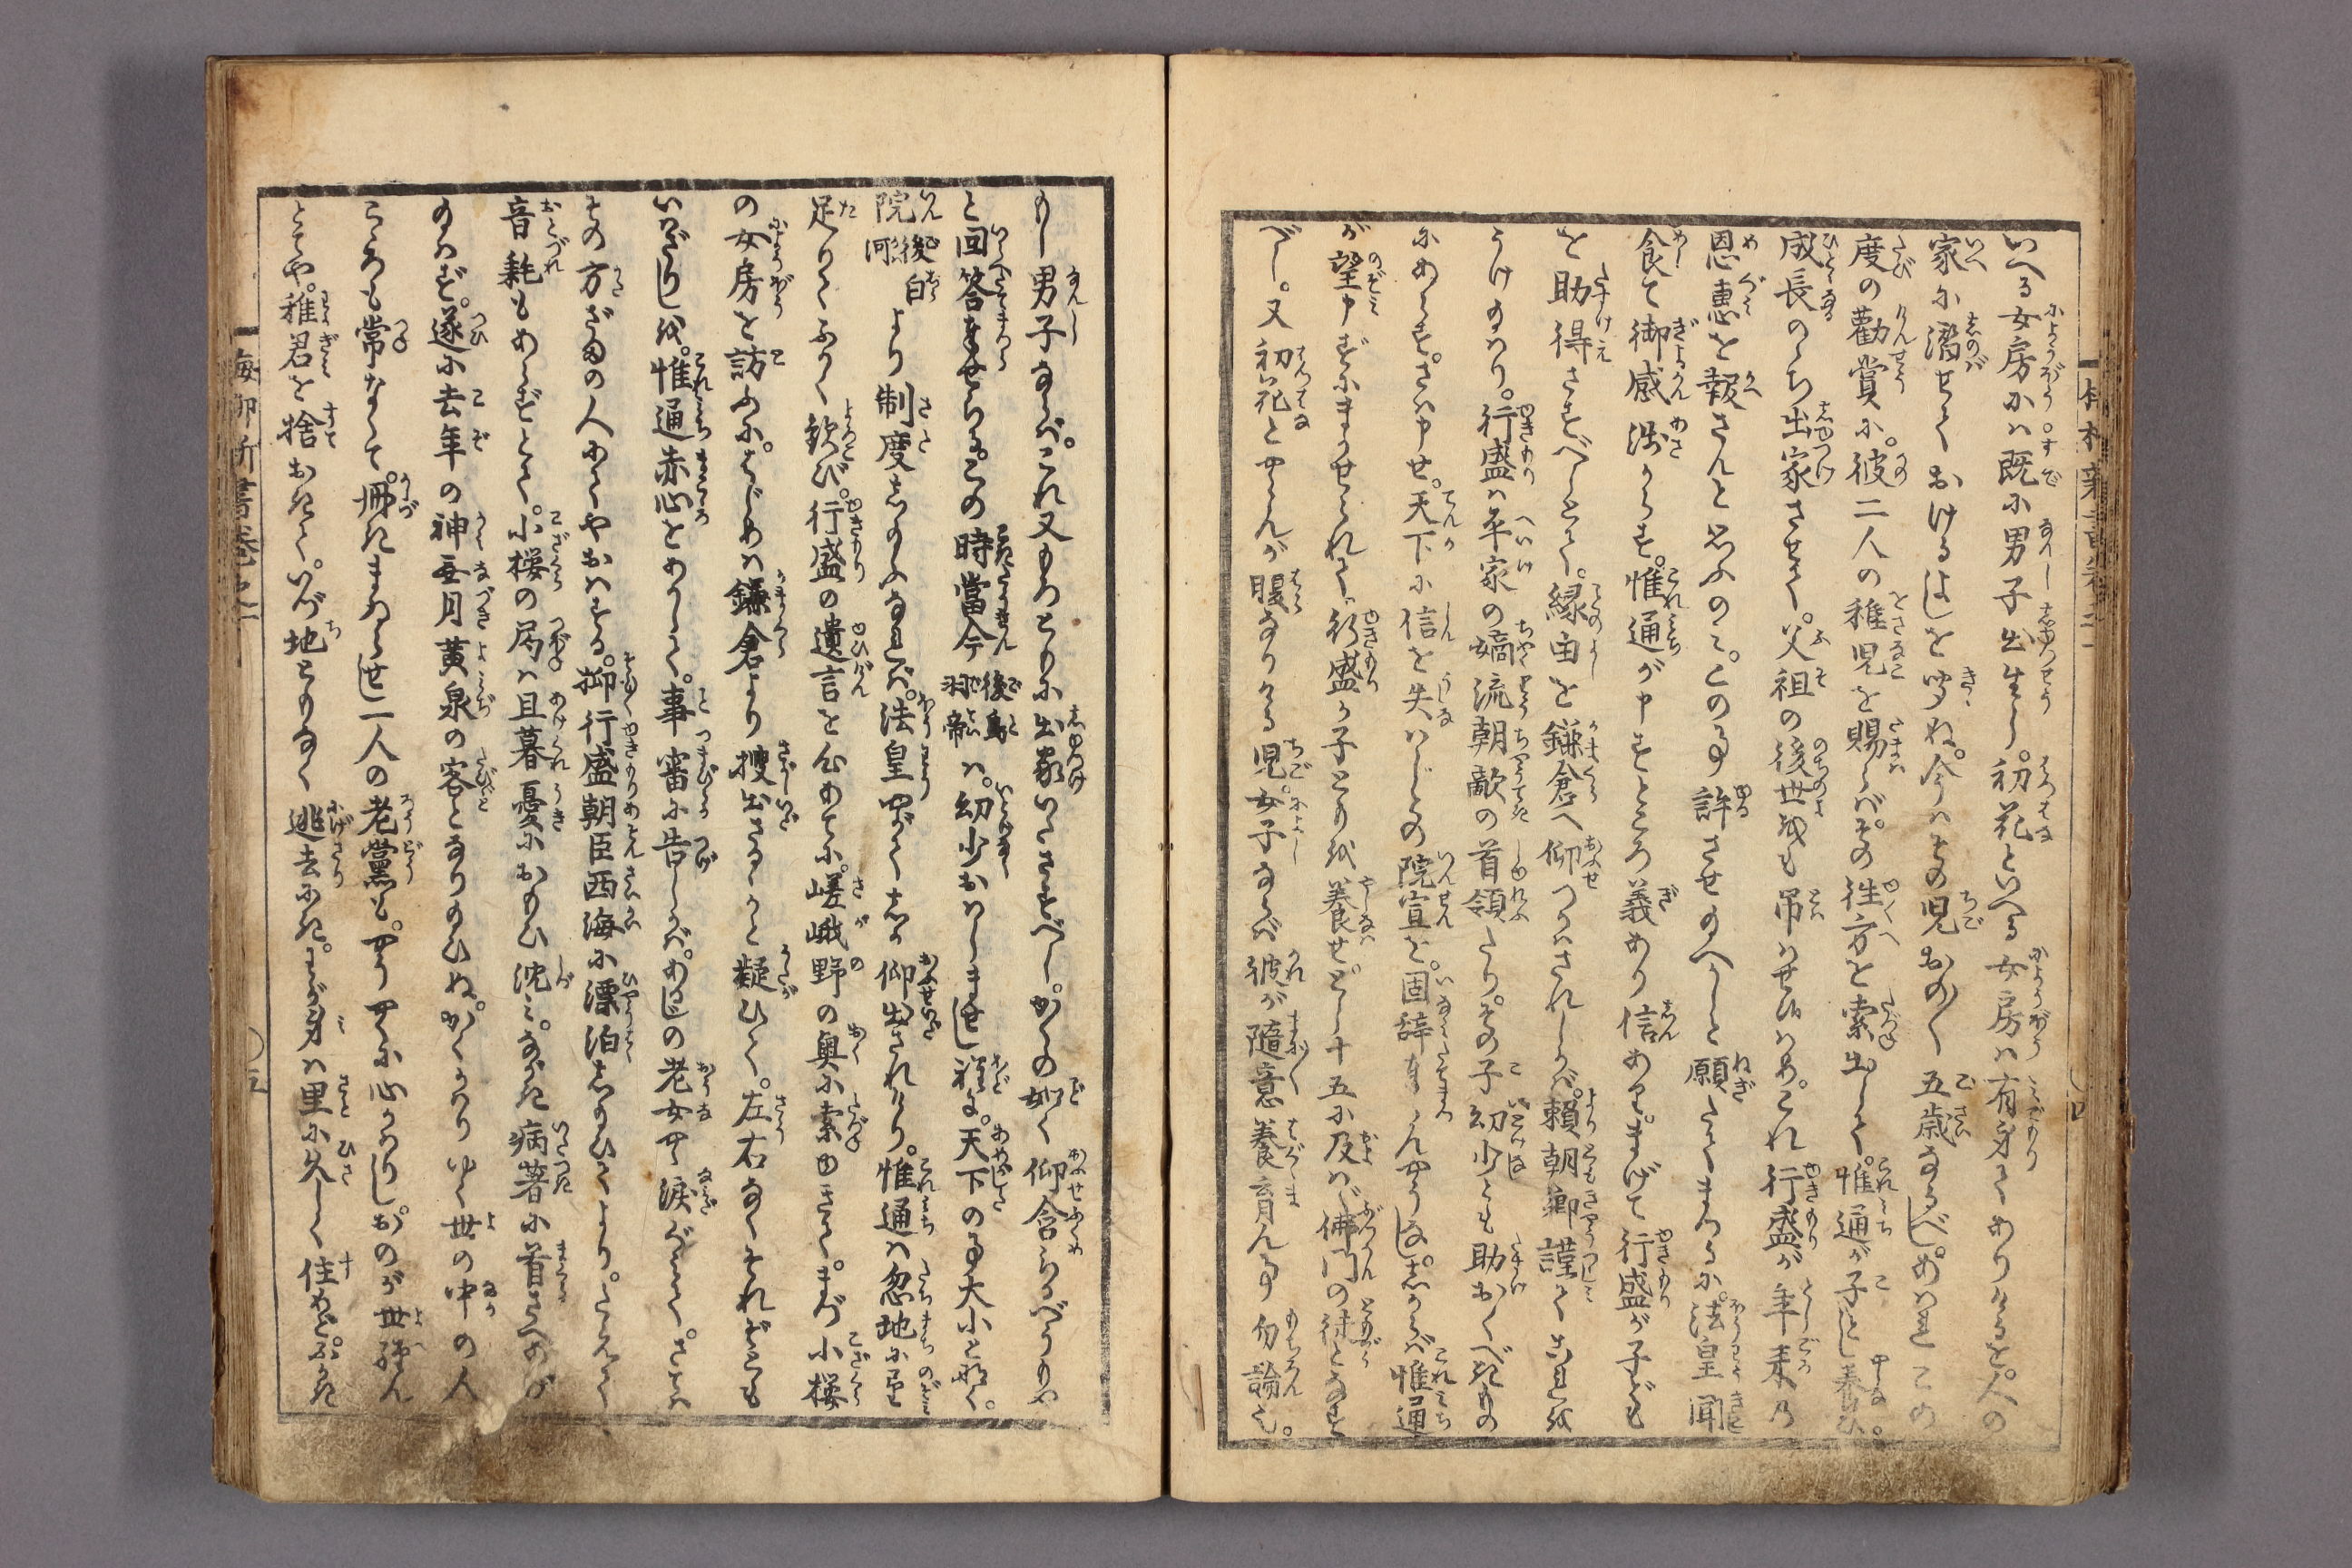 いへる女房には既に男子出生し。初花といへる女房は有身てありけるを。人の
家に潜せておけるよしを聞ぬ。今はその児おの〳〵五歳なるべし。あはれこの
度の勸賞に。彼二人の稚児を賜らば。その徃方を索出して。惟通が子とし養ひ。
成長のゝち出家させて。父祖の後世をも吊はせ候はめ。これ行盛が年来乃
恩惠を報さんと思ふのみ。この事許させ給へかしと願たてまつるに。法皇聞
食て御感浅からず。惟通が申すところ義あり信あり。まげて行盛が子ども
を助得さすべしとて。縁由を鎌倉へ仰つかはされしかば。頼朝卿謹てこれを
うけ給はり。行盛は平家の嫡流朝敵の首領たり。その子幼少とも助おくべきもの
にあらず。さは申せ。天下に信を失はじとの院宣を。固辞奉らんやうなし。しからば惟通
が望申すにまかせられて。行盛が子どもを養せ。とし十五に及はゞ佛門の徒となす
べし。又初花とやらんが腹なりける児。女子ならば彼が隨意養育ん事勿論也。
もし男子ならば。これ又もろともに出家いたさすべし。かくの如く仰含らるべうもや
と回答奉せらる。この時當今後鳥羽帝は。幼少おはしませし程に。天下の事大小となく。
院後白河より制度しめ給ふなれば。法皇やがてしか仰出されけり。惟通は忽地に望
足りてふかく歓び。行盛の遺言を心あてに。嵯峨野の奥に索ゆきて。まづ小櫻
の女房を訪ふに。はじめは鎌倉より捜出さるゝかと疑ひて。左右なくそれぞとも
いはざりしを。惟通赤心をあかして。事審に告しかば。あるじの老女やゝ涙ぐみて。さては
その方ざまの人にてやおはする。抑行盛朝臣西海に漂泊し給ひてより。たえて
音耗もあらずとて。小櫻の局は旦暮憂におもひ沈み。ながき病著に首さへあが
給はず。遂に去年の神無月黄泉の客となり給ひぬ。かくかはりゆく世の中の人
こゝろも常なくて。冊きまゐらせし一人の老黨も。やうやくに心かはりし。おのが世経ん
とてや。稚君を捨おきて。いづ地ともなく逃去にき。わが身は里に久しく住めど。ふかき